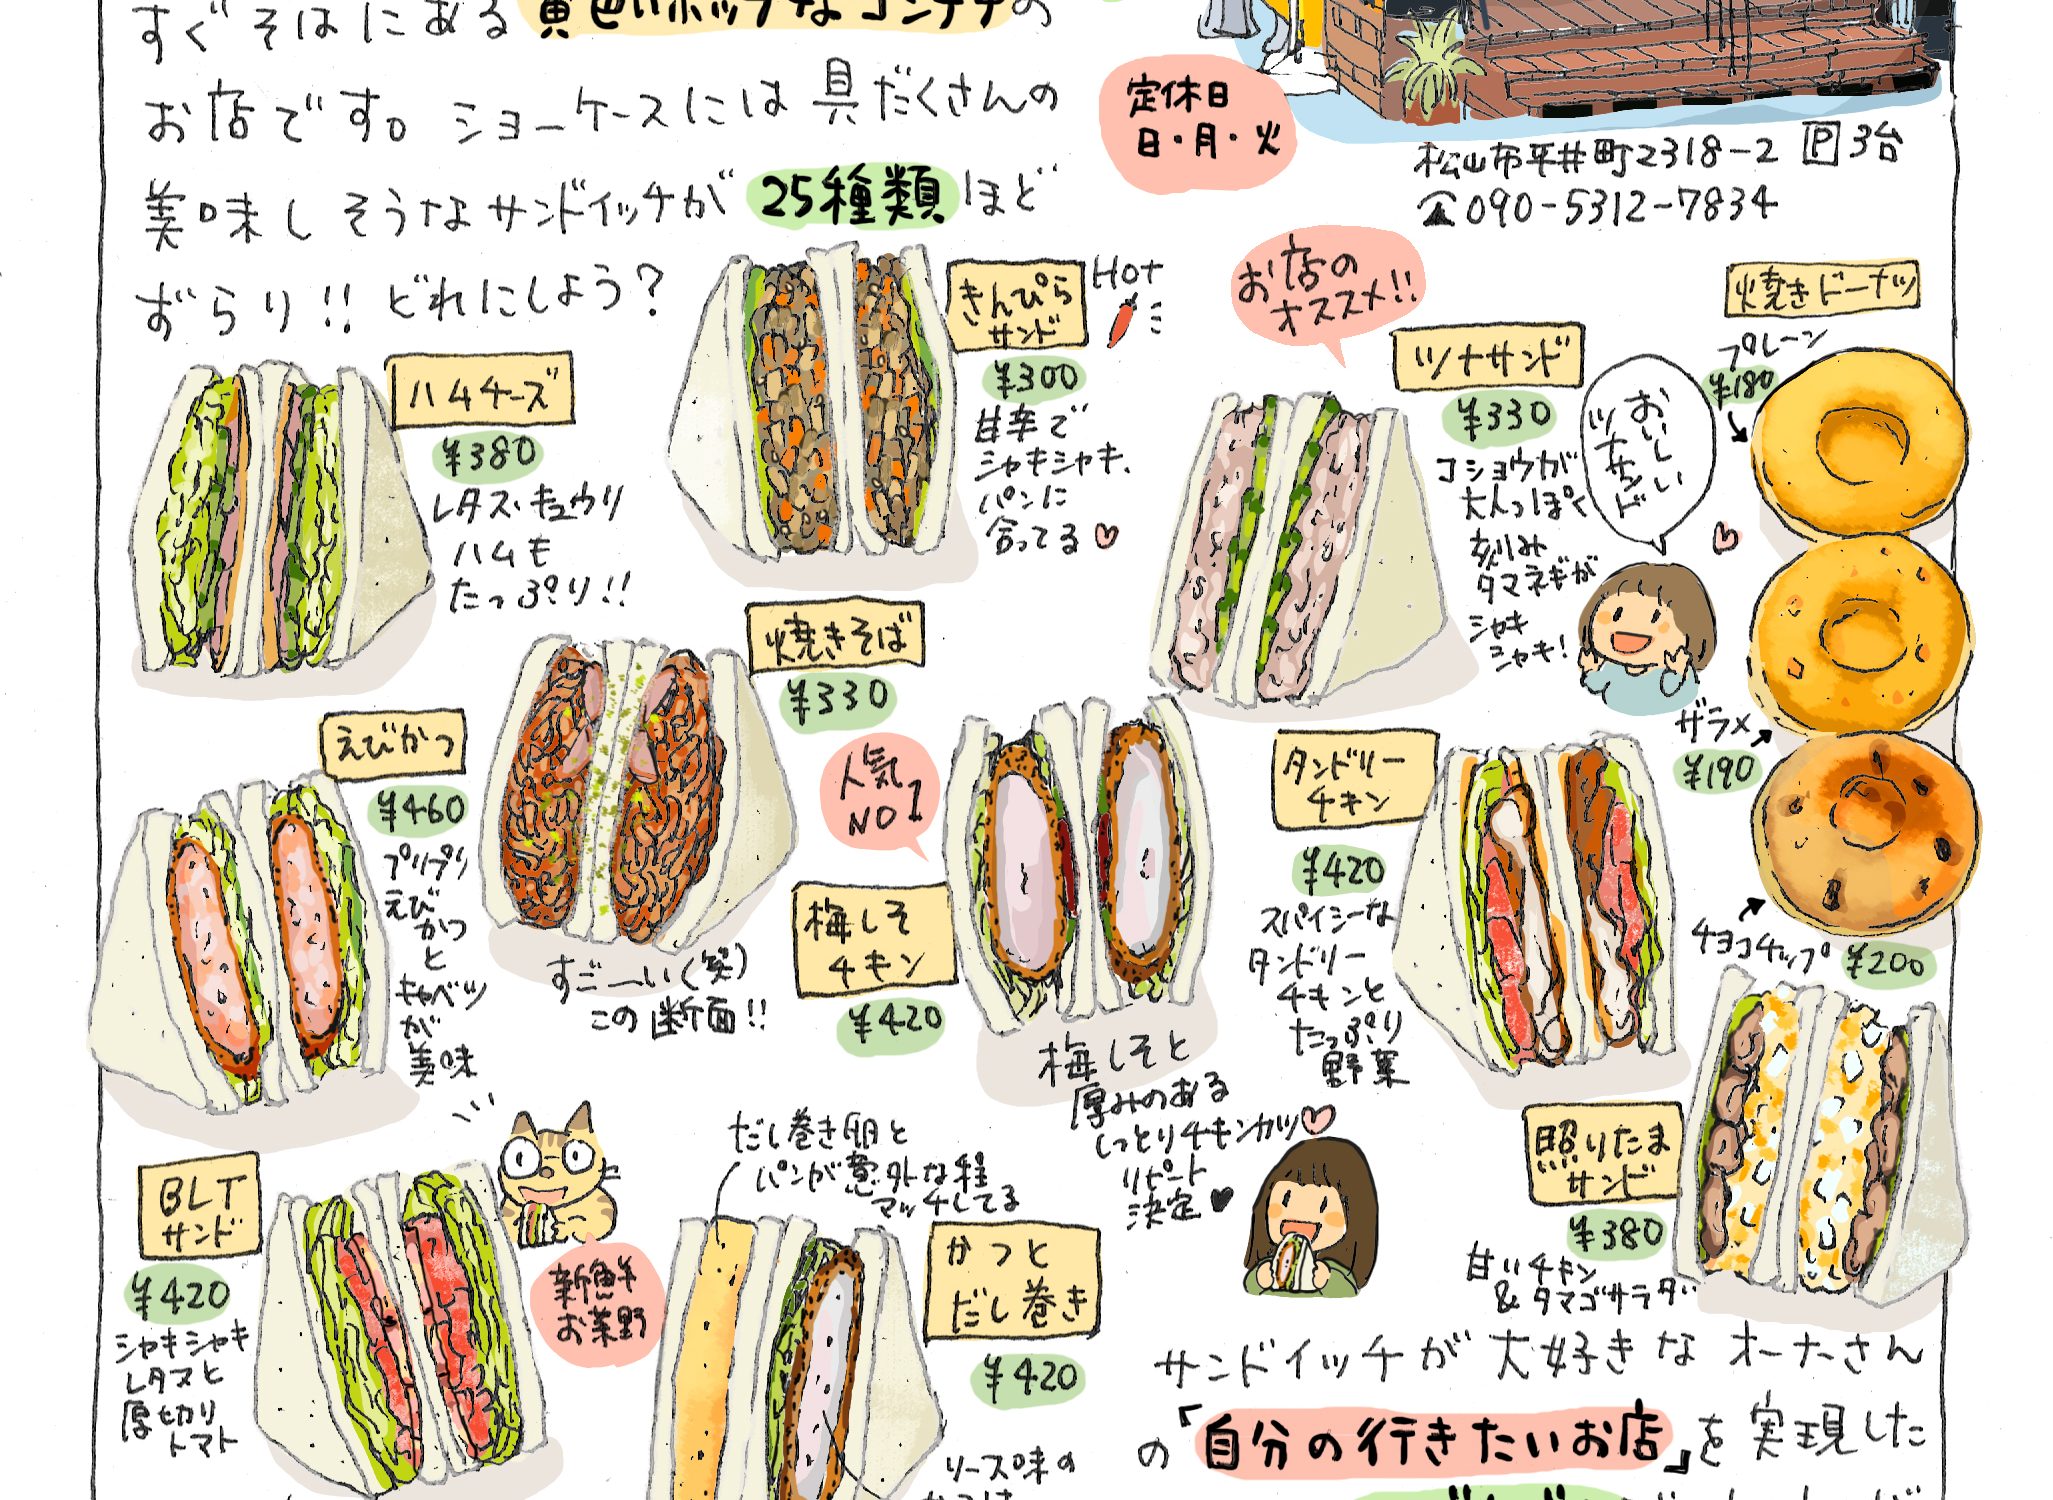 すぐそばにある黄色いポップなコンテナの
お店です。ショーケースには具だくさんの
美味しそうなサンドイッチが25種類ほど
ずらり!!どれにしよう?
定休日
日・月・火
松山市平井町2318-2 P3台
☎090-5312-7834
ハムチーズ
¥380
レタス・キュウリ
ハムも
たっぷり!!
きんぴら
サンド
Hot
¥300
甘辛で
シャキシャキ、
パンに
合ってる♡
お店の
オススメ!!
ツナサンド
¥330
コショウが
大人っぽく
刻み
タマネギが
シャキ
シャキ!
おいしい
ツナサンド
焼きドーナツ
プレーン
¥180
ザラメ
¥190
チョコチップ
¥200
えびかつ
¥460
プリプリ
えび
かつ
と
キャベツ
が
美味
焼きそば
¥330
すご〜い(笑)
この断面!!
人気
NO1
梅しそ
チキン
¥420
梅しそと
厚みのある
しっとりチキンカツ♡
リピート
決定♥
タンドリー
チキン
¥420
スパイシーな
タンドリー
チキンと
たっぷり
野菜
照りたま
サンド
¥380
甘いチキン
&タマゴサラダ
BLT
サンド
¥420
シャキシャキ
レタスと
厚切り
トマト
新鮮
お菜野
だし巻き卵と
パンが意外な程
マッチしてる
かつと
だし巻き
¥420
ソース味の
サンドイッチが大好きなオーナーさん
の『自分の行きたいお店』を実現した